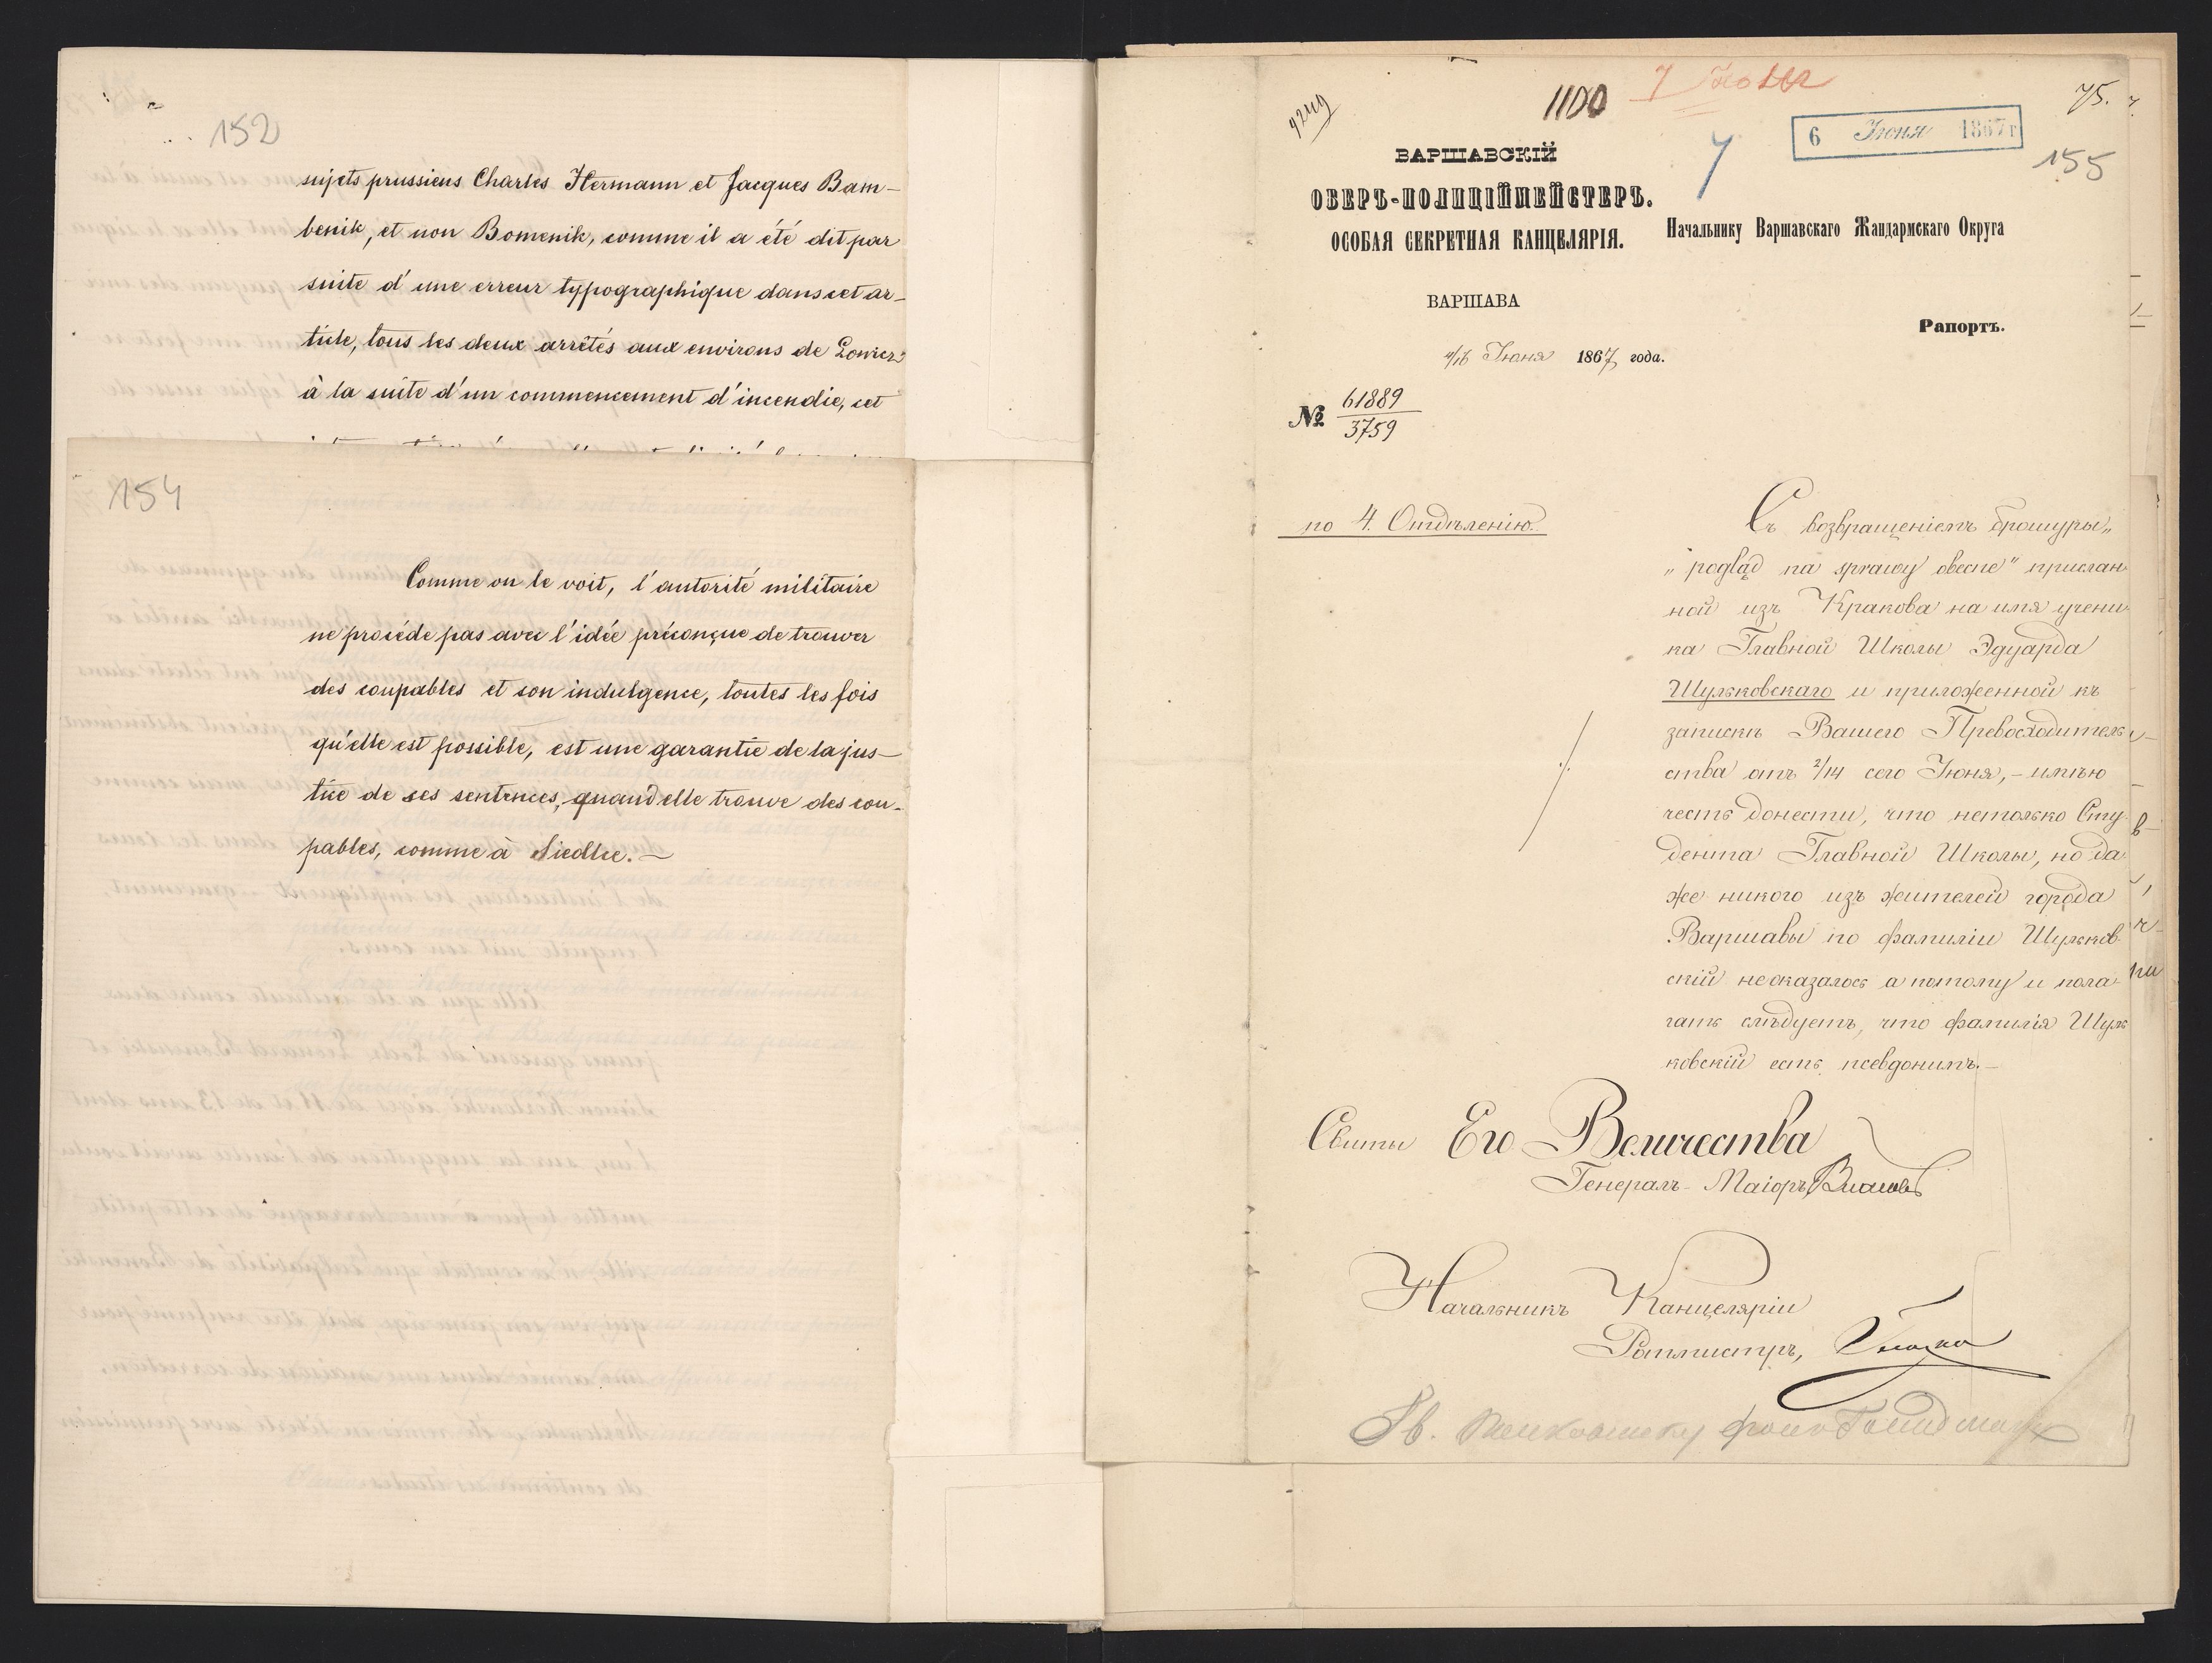 152
sujets prussiens Charles Hermann et Jacques Bam-
benik, et non Bomenik, comme il a été dit par
suite d'une erreur typographique dans cet ar-
ticle, tous les deux arrêtés aux environs de Lowicz
à la suite d'un commencement d'incendie, cet
154
Comme on le voit, l'autorité militaire
ne procéde pas avec l'idée préconçue de trouver
des coupables et son indulgence, toutes les fois
qu'elle est possible, est une garantie de la jus-
tice de ses sentences, quand elle trouve des cou-
pables, comme à Siedlce.—
4249
1100
75.
6 Июня 1867 г
155
ВАРШАВСКІЙ
ОБЕРЪ-ПОЛИЦІЙМЕЙСТЕРЪ.
ОСОБАЯ СЕКРЕТНАЯ КАНЦЕЛЯРІЯ.
Начальнику Варшавскаго Жандармскаго Округа
ВАРШАВА
Рапортъ.
4/16 Июня 1867 года.
№ 61889
3759
по 4. Отдѣленію.
Съ возвращеніемъ брошуры „
„pogląd na sprawy obecne" прислан
ной изъ Кракова на имя учени
ка Главной Школы Эдуарда
Шульковскаго и приложенной къ
запискѣ Вашего Превосходитель
ства отъ 2/14 сего Июня, – имѣю
честь донести, что нетолько Сту
дента Главной Школы, но да
же никого изъ жителей города
Варшавы по фамиліи Шульков
скій неоказалось а потому и пола
гать слѣдуетъ, что фамилія Шуль
ковскій есть псевдонимъ.—
Свиты Его Величества
Генералъ-Маіоръ Власовъ
Начальникъ Канцеляріи
Ротмистръ,